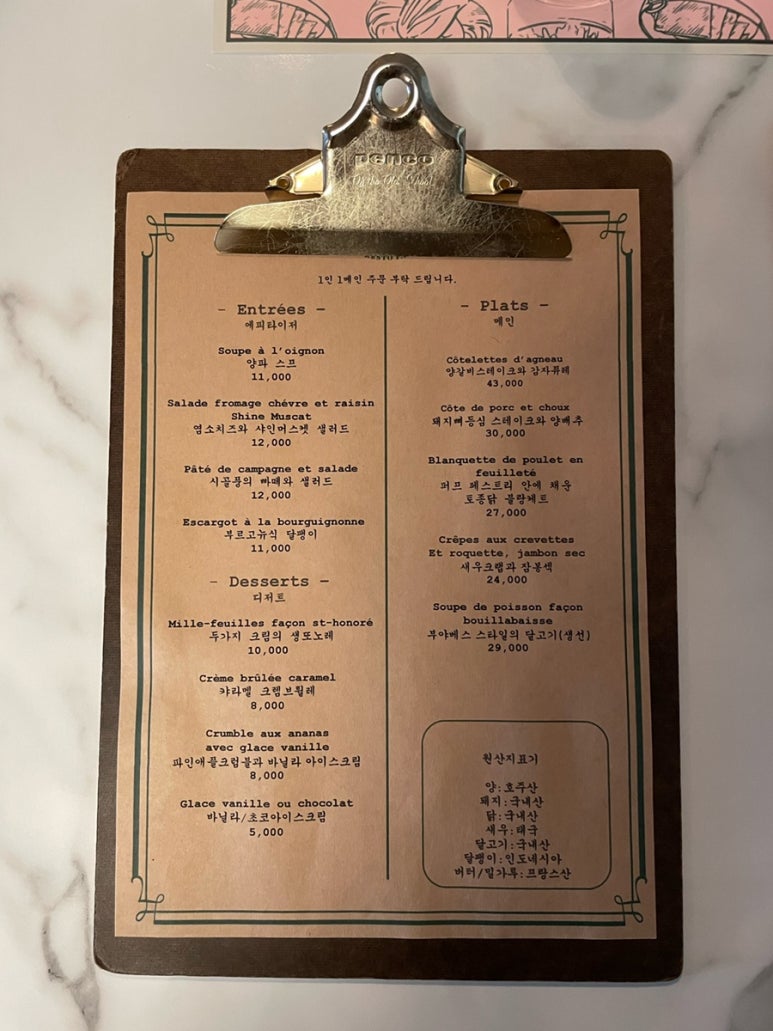 PENCO
1인 1메인 주문 부탁 드립니다.
- Entrées -
에피타이저
Soupe à l'oignon
양파 스프
11,000
Salade fromage chévre et raisin
Shine Muscat
염소치즈와 샤인머스켓 샐러드
12,000
Pâté de campagne et salade
시골풍의 빠떼와 샐러드
12,000
Escargot à la bourguignonne
부르고뉴식 달팽이
11,000
- Desserts -
디저트
Mille-feuilles façon st-honoré
두가지 크림의 생또노레
10,000
Crème brûlée caramel
캬라멜 크렘브륄레
8,000
Crumble aux ananas
avec glace vanille
파인애플크럼블과 바닐라 아이스크림
8,000
Glace vanille ou chocolat
바닐라/초코아이스크림
5,000
- Plats -
메인
Côtelettes d'agneau
양갈비스테이크와 감자퓨레
43,000
Côte de porc et choux
돼지뼈등심 스테이크와 양배추
30,000
Blanquette de poulet en
feuilleté
퍼프 페스트리 안에 채운
토종닭 블랑케트
27,000
Crêpes aux crevettes
Et roquette, jambon sec
새우크랩과 잠봉섹
24,000
Soupe de poisson façon
bouillabaisse
부야베스 스타일의 달고기(생선)
29,000
원산지표기
양:호주산
돼지:국내산
닭:국내산
새우:태국
달고기:국내산
달팽이:인도네시아
버터/밀가루:프랑스산